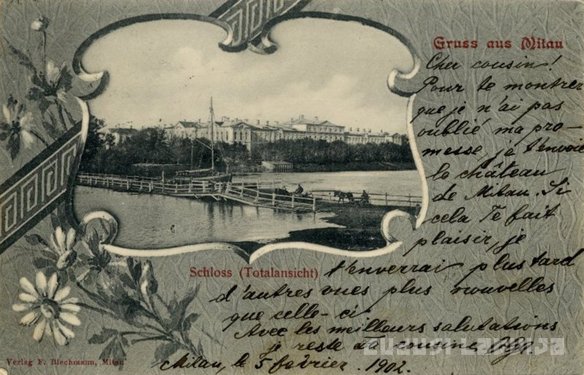 Gruss aus Mitau
Cher cousin!
Pour te montrer
que je n'ai pas
oublié ma pro-
messe, je t'envoie
le château
de Mitau. Si
cela te fait
plaisir, je
Schloss (Totalansicht)
t'enverrai plus tard
d'autres vues plus nouvelles
que celle-ci
Avec les meilleurs salutations
je reste ta cousine
Mitau, le 5 février 1902.
Verlag F. Blechmann, Mitau